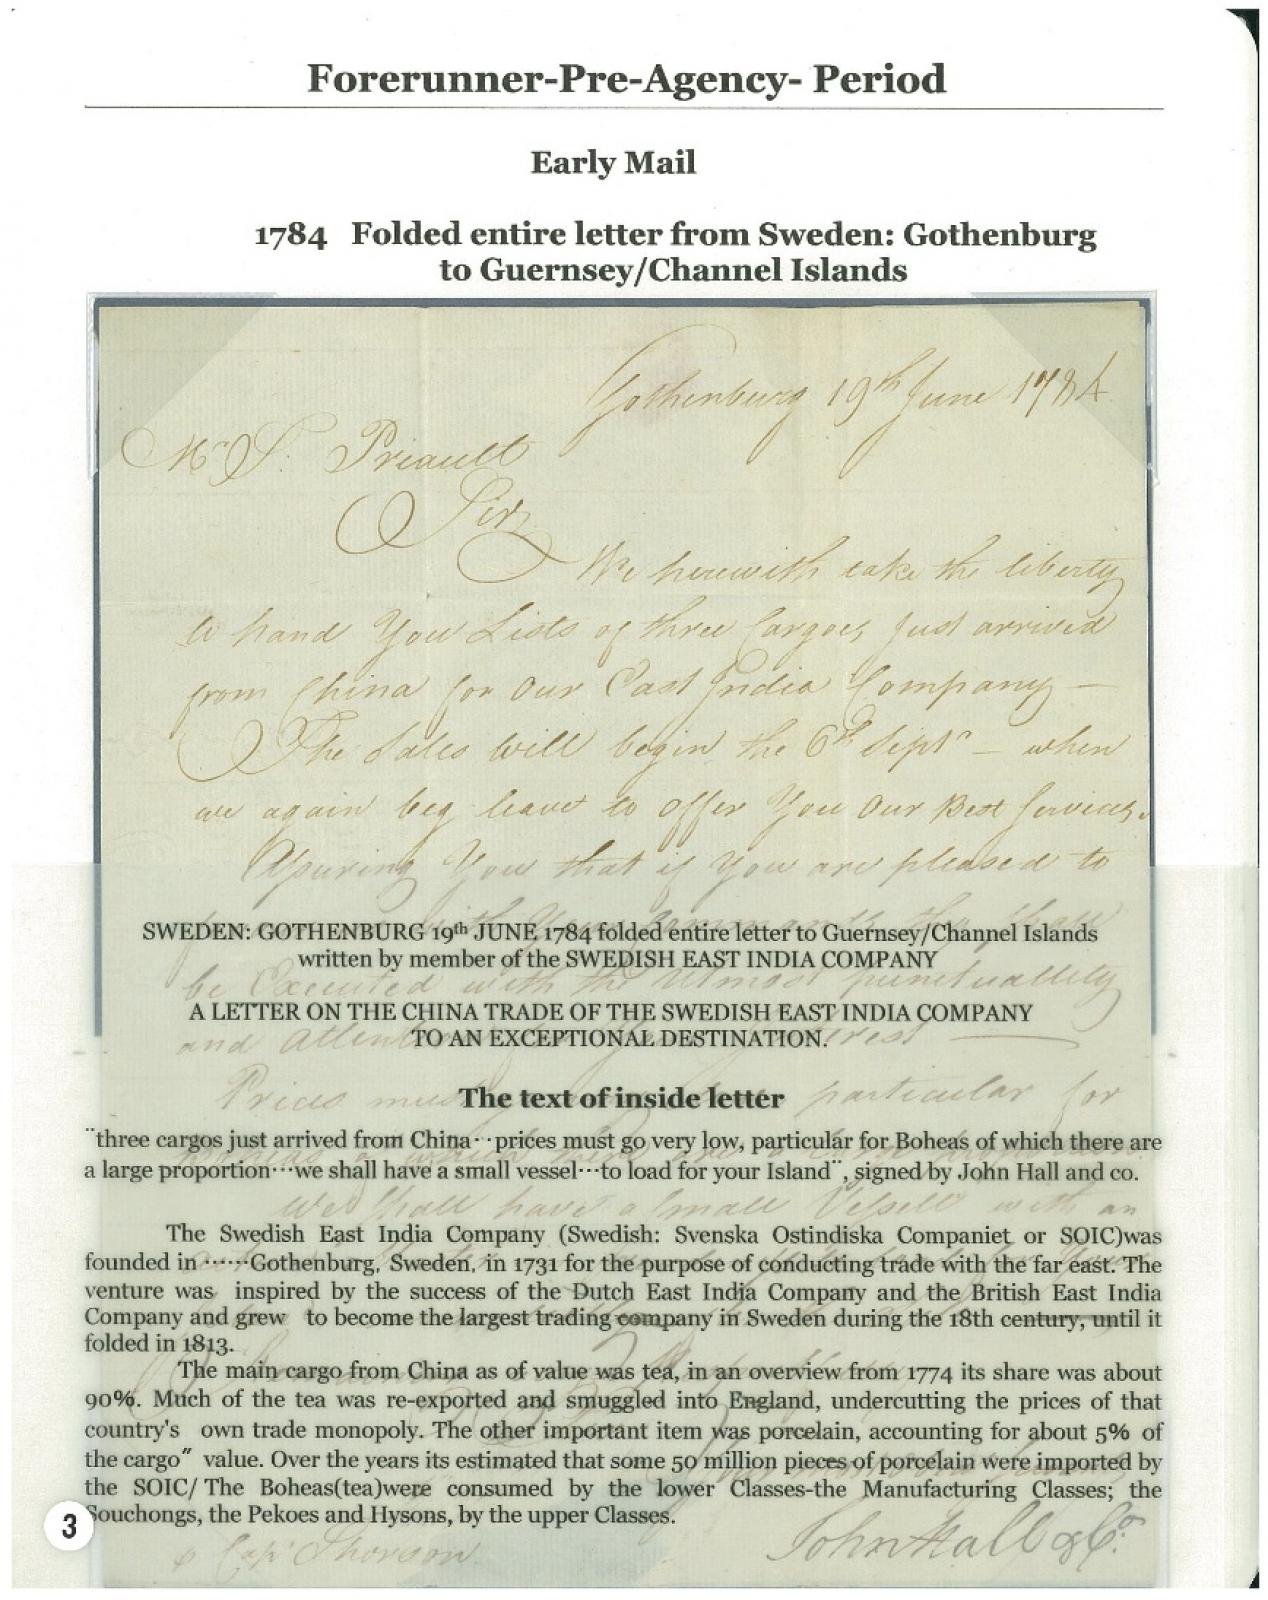 Forerunner-Pre-Agency- Period
Early Mail
1784 Folded entire letter from Sweden: Gothenburg
to Guernsey/Channel Islands
Gothenburg 19th June 1784
Mr S. Priault
Sir
We herewith take the liberty
to hand You Lists of three Cargoes just arrived
from China for Our East India Company —
The Sales will begin the 6th Septr — when
we again beg leave to offer You Our Best Services
Assuring You that if You are pleased to
SWEDEN: GOTHENBURG 19th JUNE 1784 folded entire letter to Guernsey/Channel Islands
written by member of the SWEDISH EAST INDIA COMPANY
be Executed with the Utmost punctuallity
A LETTER ON THE CHINA TRADE OF THE SWEDISH EAST INDIA COMPANY
TO AN EXCEPTIONAL DESTINATION.
and
Prices particular for
The text of inside letter
¨three cargos just arrived from China··prices must go very low, particular for Boheas of which there are
a large proportion···we shall have a small vessel···to load for your Island¨, signed by John Hall and co.
We shall have a small Vessell with an
The Swedish East India Company (Swedish: Svenska Ostindiska Companiet or SOIC)was
founded in ······Gothenburg, Sweden, in 1731 for the purpose of conducting trade with the far east. The
venture was inspired by the success of the Dutch East India Company and the British East India
Company and grew to become the largest trading company in Sweden during the 18th century, until it
folded in 1813.
The main cargo from China as of value was tea, in an overview from 1774 its share was about
90%. Much of the tea was re-exported and smuggled into England, undercutting the prices of that
country's own trade monopoly. The other important item was porcelain, accounting for about 5% of
the cargo″ value. Over the years its estimated that some 50 million pieces of porcelain were imported by
the SOIC/ The Boheas(tea)were consumed by the lower Classes-the Manufacturing Classes; the
Souchongs, the Pekoes and Hysons, by the upper Classes.
3
Capt Thorson
John Hall & Co.